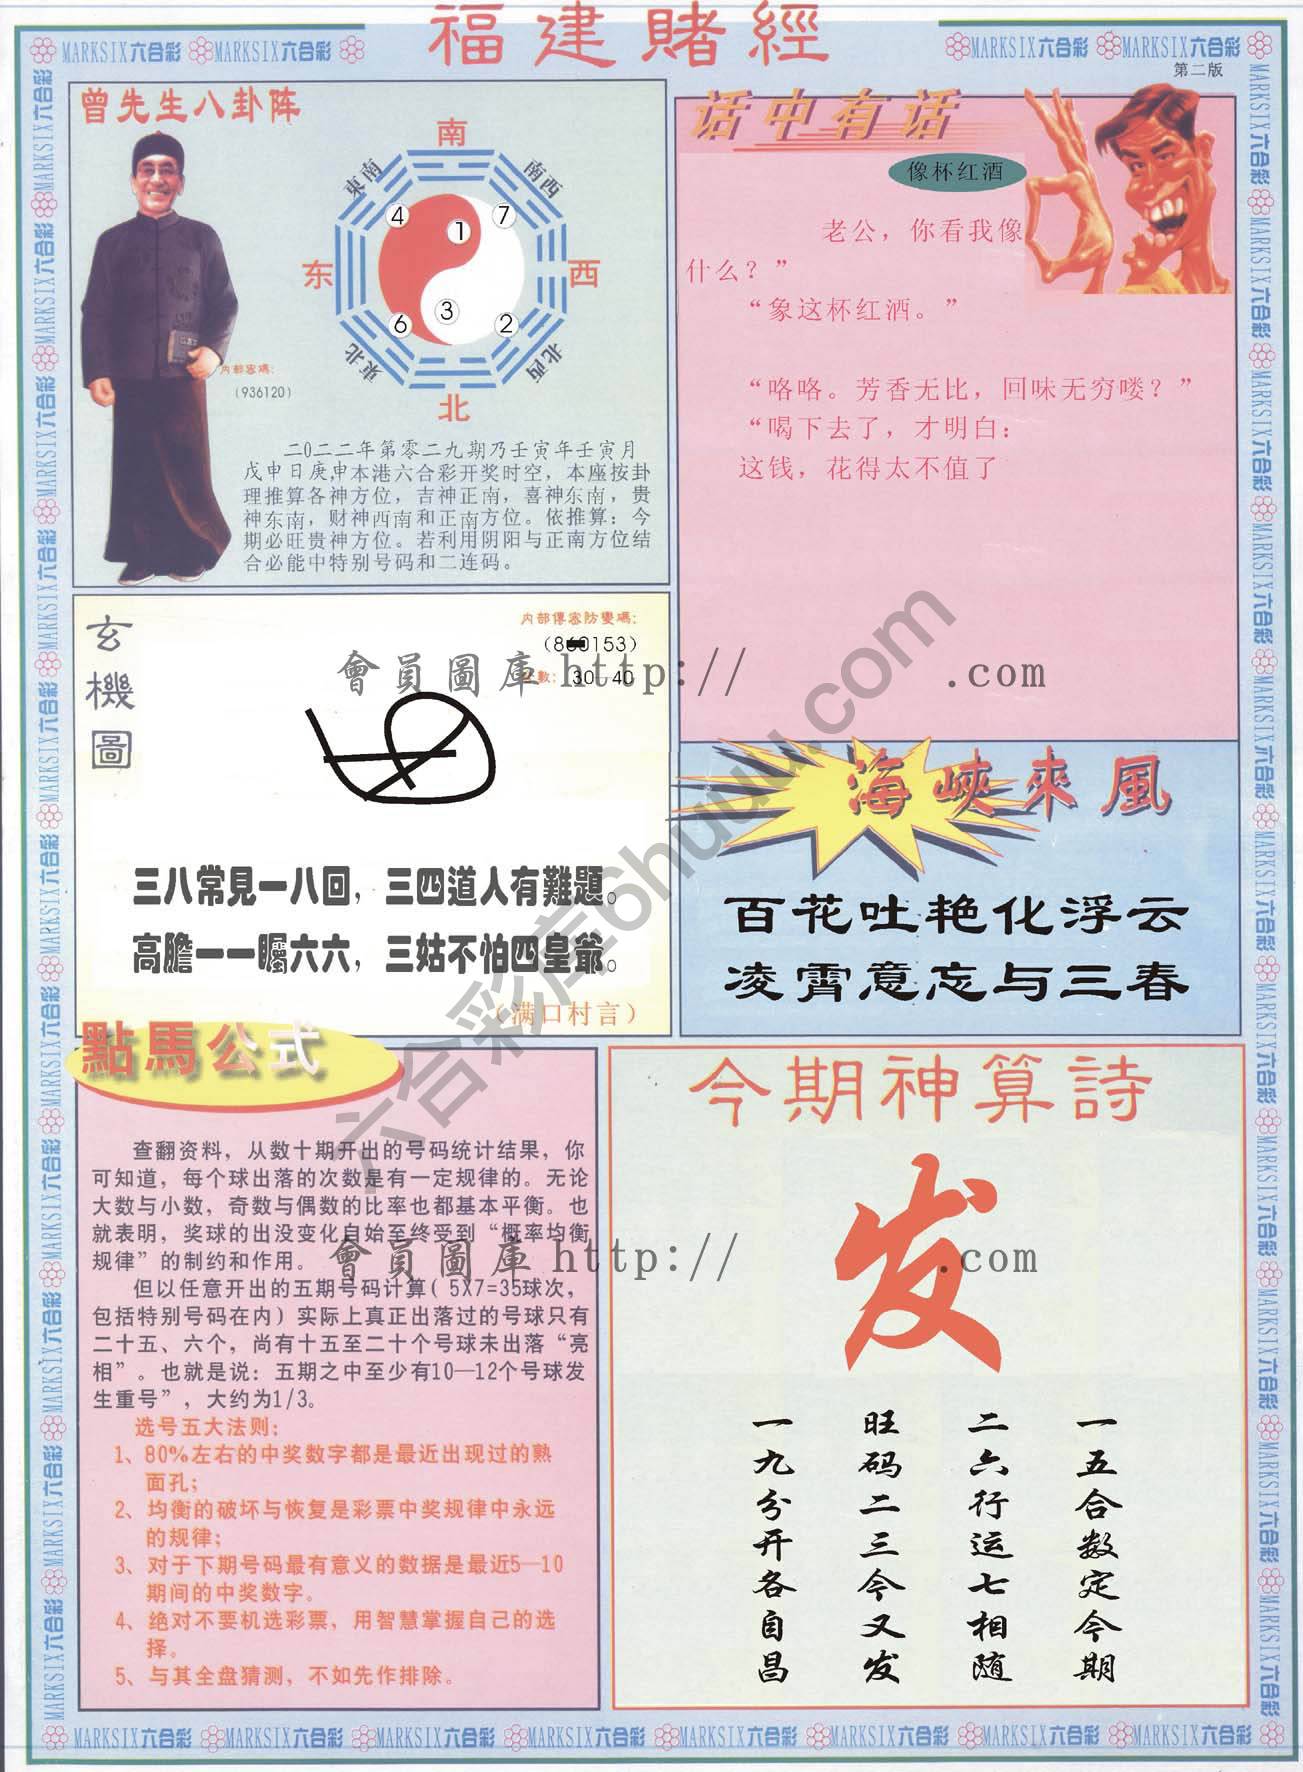 福建賭經
MARKSIX六合彩 MARKSIX六合彩
MARKSIX六合彩 MARKSIX六合彩
第二版
曾先生八卦阵
南
東南
南西
4
7
1
东
西
3
6
2
東北
北西
北
内部密碼：
（936120）
二0二二年第零二九期乃壬寅年壬寅月
戊申日庚申本港六合彩开奖时空，本座按卦
理推算各神方位，吉神正南，喜神东南，贵
神东南，财神西南和正南方位。依推算：今
期必旺贵神方位。若利用阴阳与正南方位结
合必能中特别号码和二连码。
话中有话
像杯红酒
老公，你看我像
什么？”
“象这杯红酒。”
“咯咯。芳香无比，回味无穷喽？”
“喝下去了，才明白：
这钱，花得太不值了
玄機圖
内部傳密防變碼：
數：30 40
會員圖庫 http:// .com
三八常見一八回，三四道人有難題。
高膽一一矚六六，三姑不怕四皇爺。
（满口村言）
海峽來風
百花吐艳化浮云
凌霄意忘与三春
六合彩库6huuu.com
點馬公式
查翻资料，从数十期开出的号码统计结果，你
可知道，每个球出落的次数是有一定规律的。无论
大数与小数，奇数与偶数的比率也都基本平衡。也
就表明，奖球的出没变化自始至终受到“概率均衡
规律”的制约和作用。
但以任意开出的五期号码计算（5X7=35球次，
包括特别号码在内）实际上真正出落过的号球只有
二十五、六个，尚有十五至二十个号球未出落“亮
相”。也就是说：五期之中至少有10—12个号球发
生重号”，大约为1/3。
选号五大法则：
1、80%左右的中奖数字都是最近出现过的熟
面孔；
2、均衡的破坏与恢复是彩票中奖规律中永远
的规律；
3、对于下期号码最有意义的数据是最近5—10
期间的中奖数字。
4、绝对不要机选彩票，用智慧掌握自己的选
择。
5、与其全盘猜测，不如先作排除。
今期神算詩
會員圖庫 http:// .com
发
一五合数定今期
二六行运七相随
旺码二三今又发
一九分开各自昌
MARKSIX六合彩 MARKSIX六合彩 MARKSIX六合彩 MARKSIX六合彩 MARKSIX六合彩 MARKSIX六合彩 MARKSIX六合彩 MARKSIX六合彩